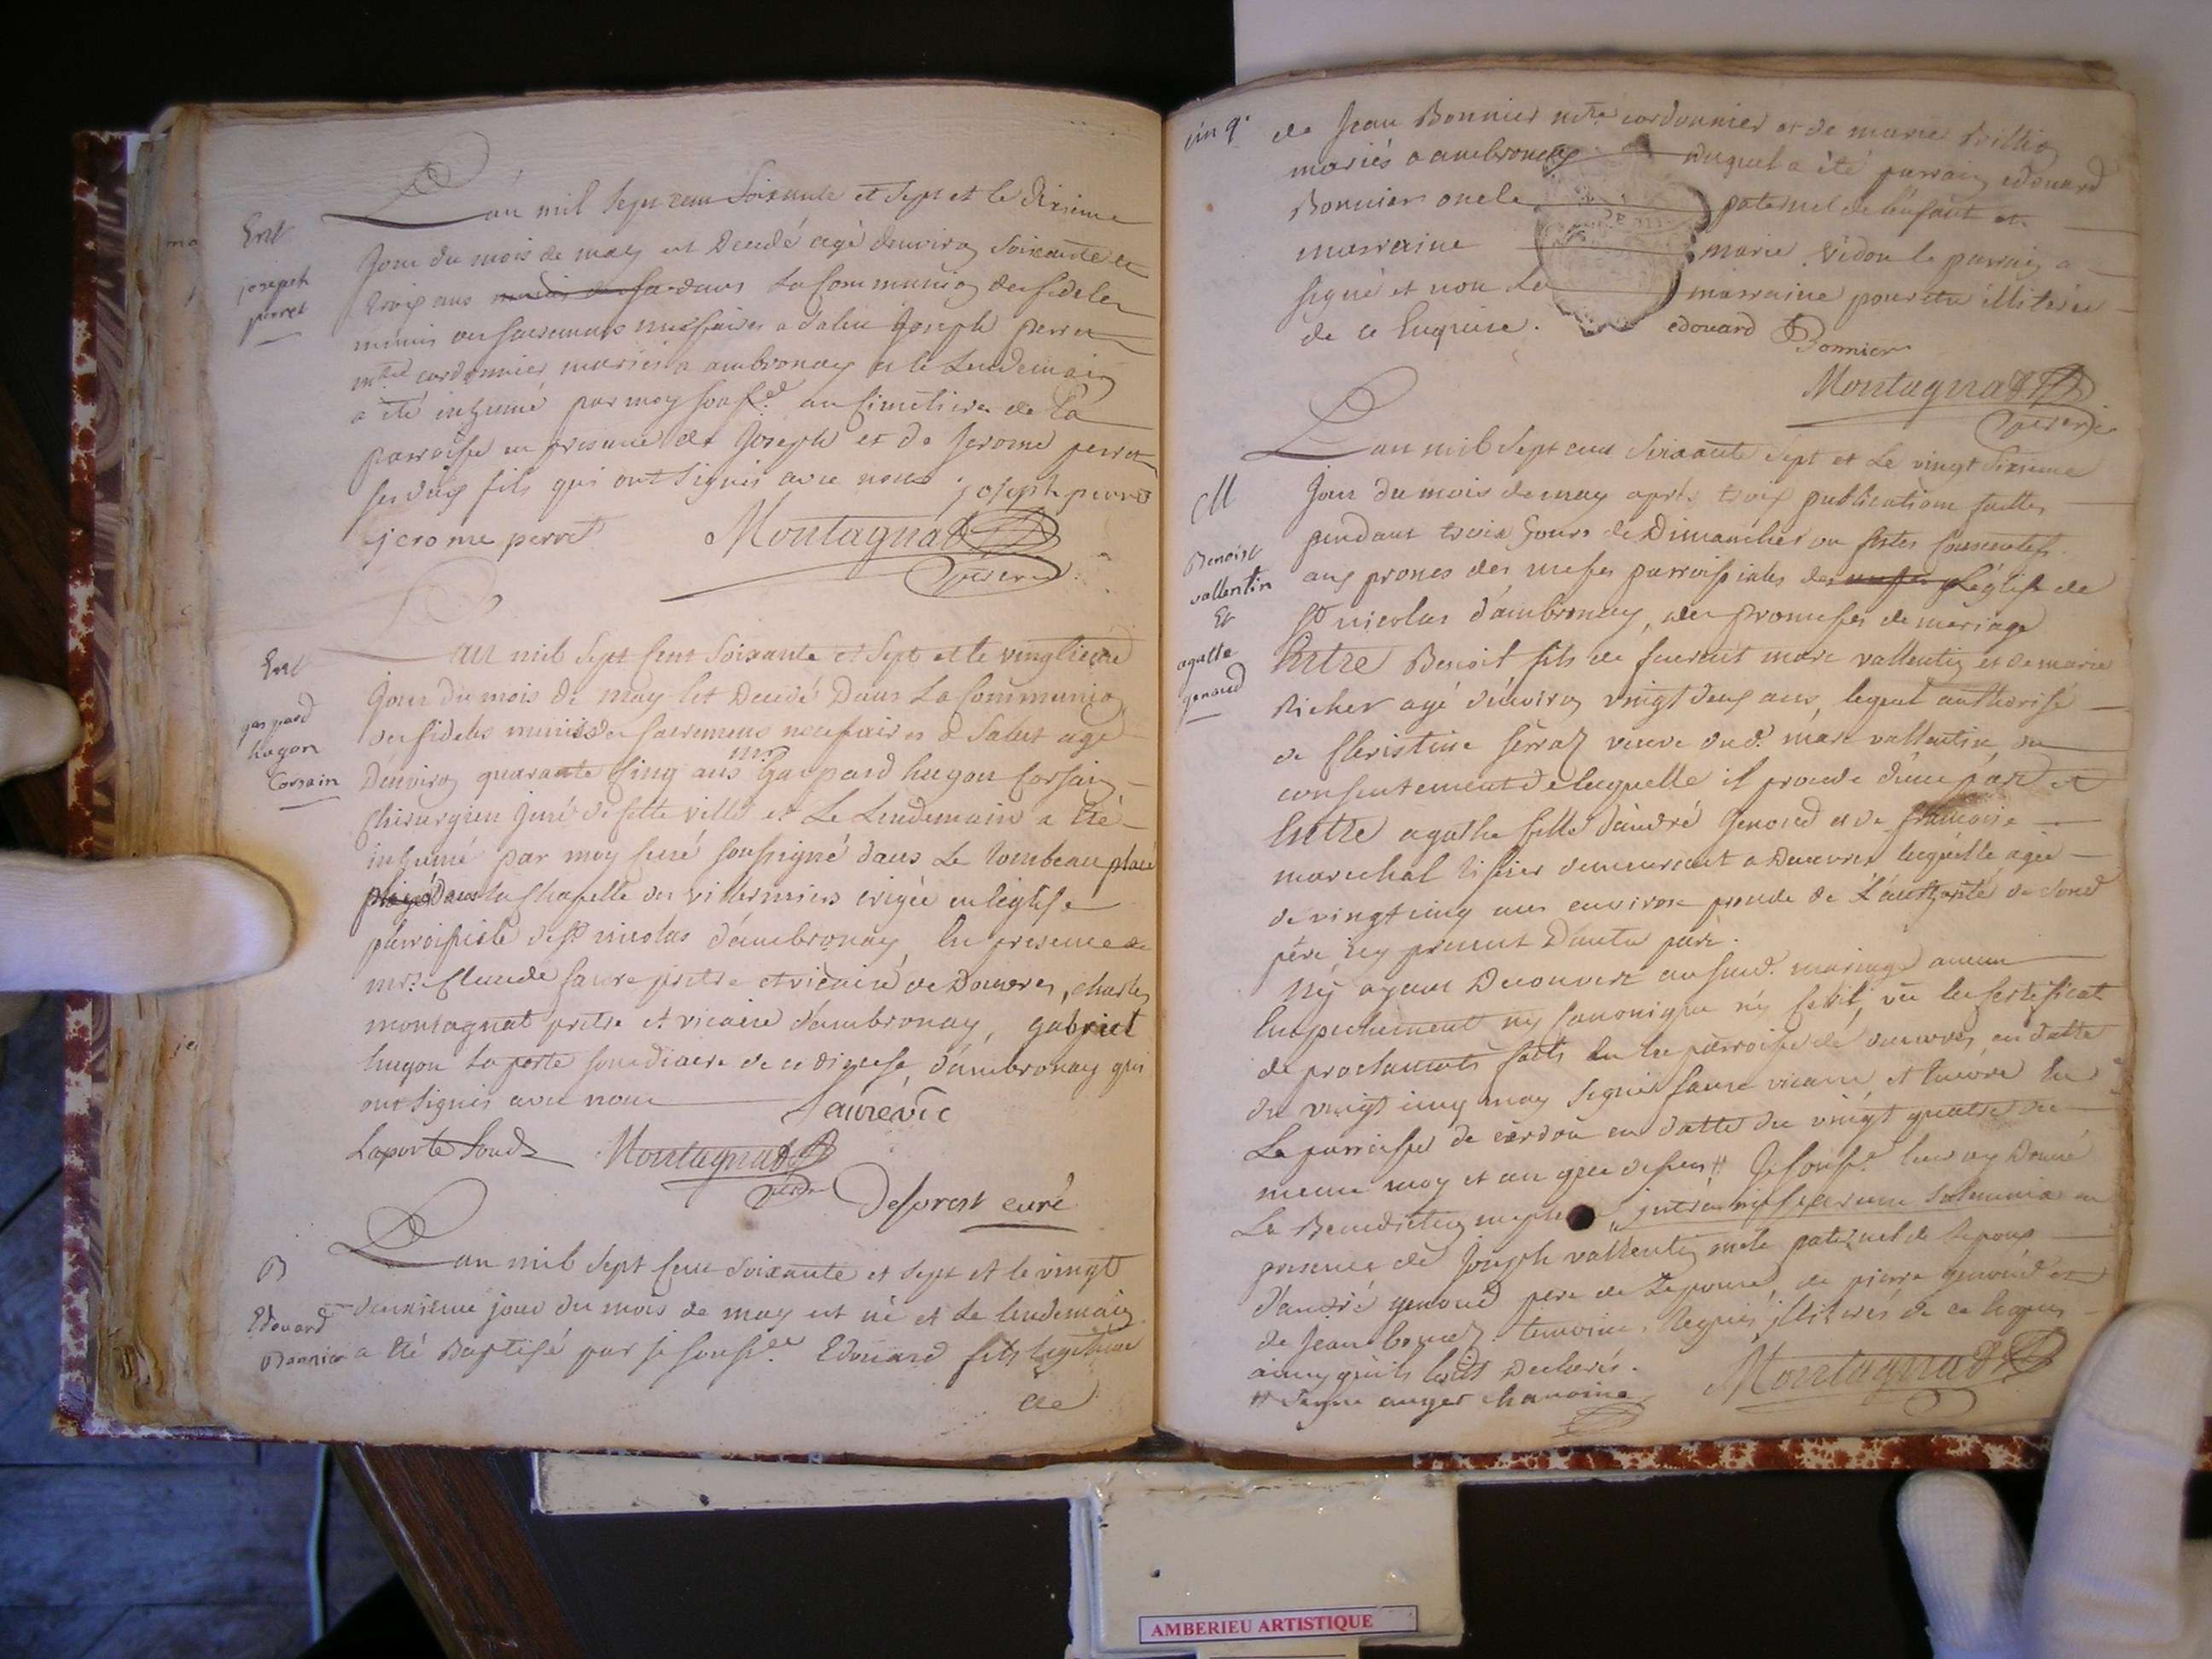 Ent
joseph
perret
Lan mil sept cent soixante et sept et le dixieme
jour du mois de may est decedé agé denviron soixante et
trois ans dans la Communion des fideles
munis des sacremens necessaires a salut Joseph perret
mtre cordonnier mariés a ambronay et le lendemain
a été inhumé par moy soussd. au simetiere de la
parroisse en presence de Joseph et de jerome perret
ses deux fils qui ont signés avec nous joseph perret
jerome perret Montagnat
vicaire
Ent
gaspard
hugon
Corsain
Lan mil sept cent soixante et sept et le vingtieme
jour du mois de may est decedé dans la Communion
des fideles munis des sacremens necessaires a salut agé
denviron quarante cinq ans mr Gaspard hugon Corsain
chirurgien juré de cette ville et le lendemain a été
inhumé par moy curé soussigné dans le tombeau placé
dans la chapelle des erigée en léglise
parroissiale de st nicolas d'ambronay en presence de
mrs. Claude faure pretre et vicaire de Douvres, charles
montagnat pretre et vicaire d'ambronay, gabriel
hugon laporte soudiacre de ce diocese d'ambronay qui
ont signés avec nous faure vic
Laporte soud. Montagnat
vicaire Desprest curé
B
Edouard
Bonnier
Lan mil sept cent soixante et sept et le vingt
deuxieme jour du mois de may est né et le lendemain
a été Baptisé par je soussd. Edouard fils legitime
de
cinq.
de Jean Bonnier mtre cordonnier et de marie
mariés a ambronay duquel a été parrain edouard
Bonnier oncle paternel de lenfant et
marraine marie vidon le parrain a
signé et non la marraine pour etre illiterée
de ce Enquise. edouard Bonnier
Montagnat
vicaire
M
Benoist
vallentin
Et
agathe
genoud
Lan mil sept cent soixante sept et le vingt sixieme
jour du mois de may aprés trois publications faittes
pendant trois jours de Dimanches ou festes consecutifs
aux prones des messes parroissiales de Léglise de
st nicolas d'ambronay, des promesses de mariage
Entre Benoit fils de feu marc vallentin et de marie
Richer agé d'environ vingt deux ans, lequel authorisé
de Christine veuve dud. marc vallentin du
consentement de laquelle il procede d'une part et
Entre agathe fille d'andré Genoud et de francoise
marechal demeurant a Douvres laquelle agée
de vingt cinq ans environ procede de l'authorité de sond
père icy present d'autre part.
N'y ayant Decouvert ausud. mariage aucun
Empechement ny Canonique ny Civil, vû les certificat
de proclamats faits en la parroisse de douvres en datte
du vingt cinq may signé faure vicaire et encore en
La parroisse de cerdon en datte du vingt quatre du
meme moy et an que dessus # Je soussd. leur ay Donné
La Benediction nuptialle intra missarum solemnia en
presence de Joseph vallentin oncle paternel de lepoux
d'andré genoud pere de lepouse, de pierre genoud et
de Jean temoins, Requis illiterés de ce Enquis
ainsy quils l'ont declarés.
# signé auger chanoine Montagnat
AMBERIEU ARTISTIQUE